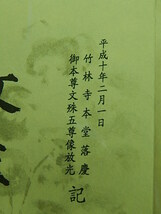 平成十年二月一日
竹林寺本堂落慶
御本尊文殊五尊像放光
記